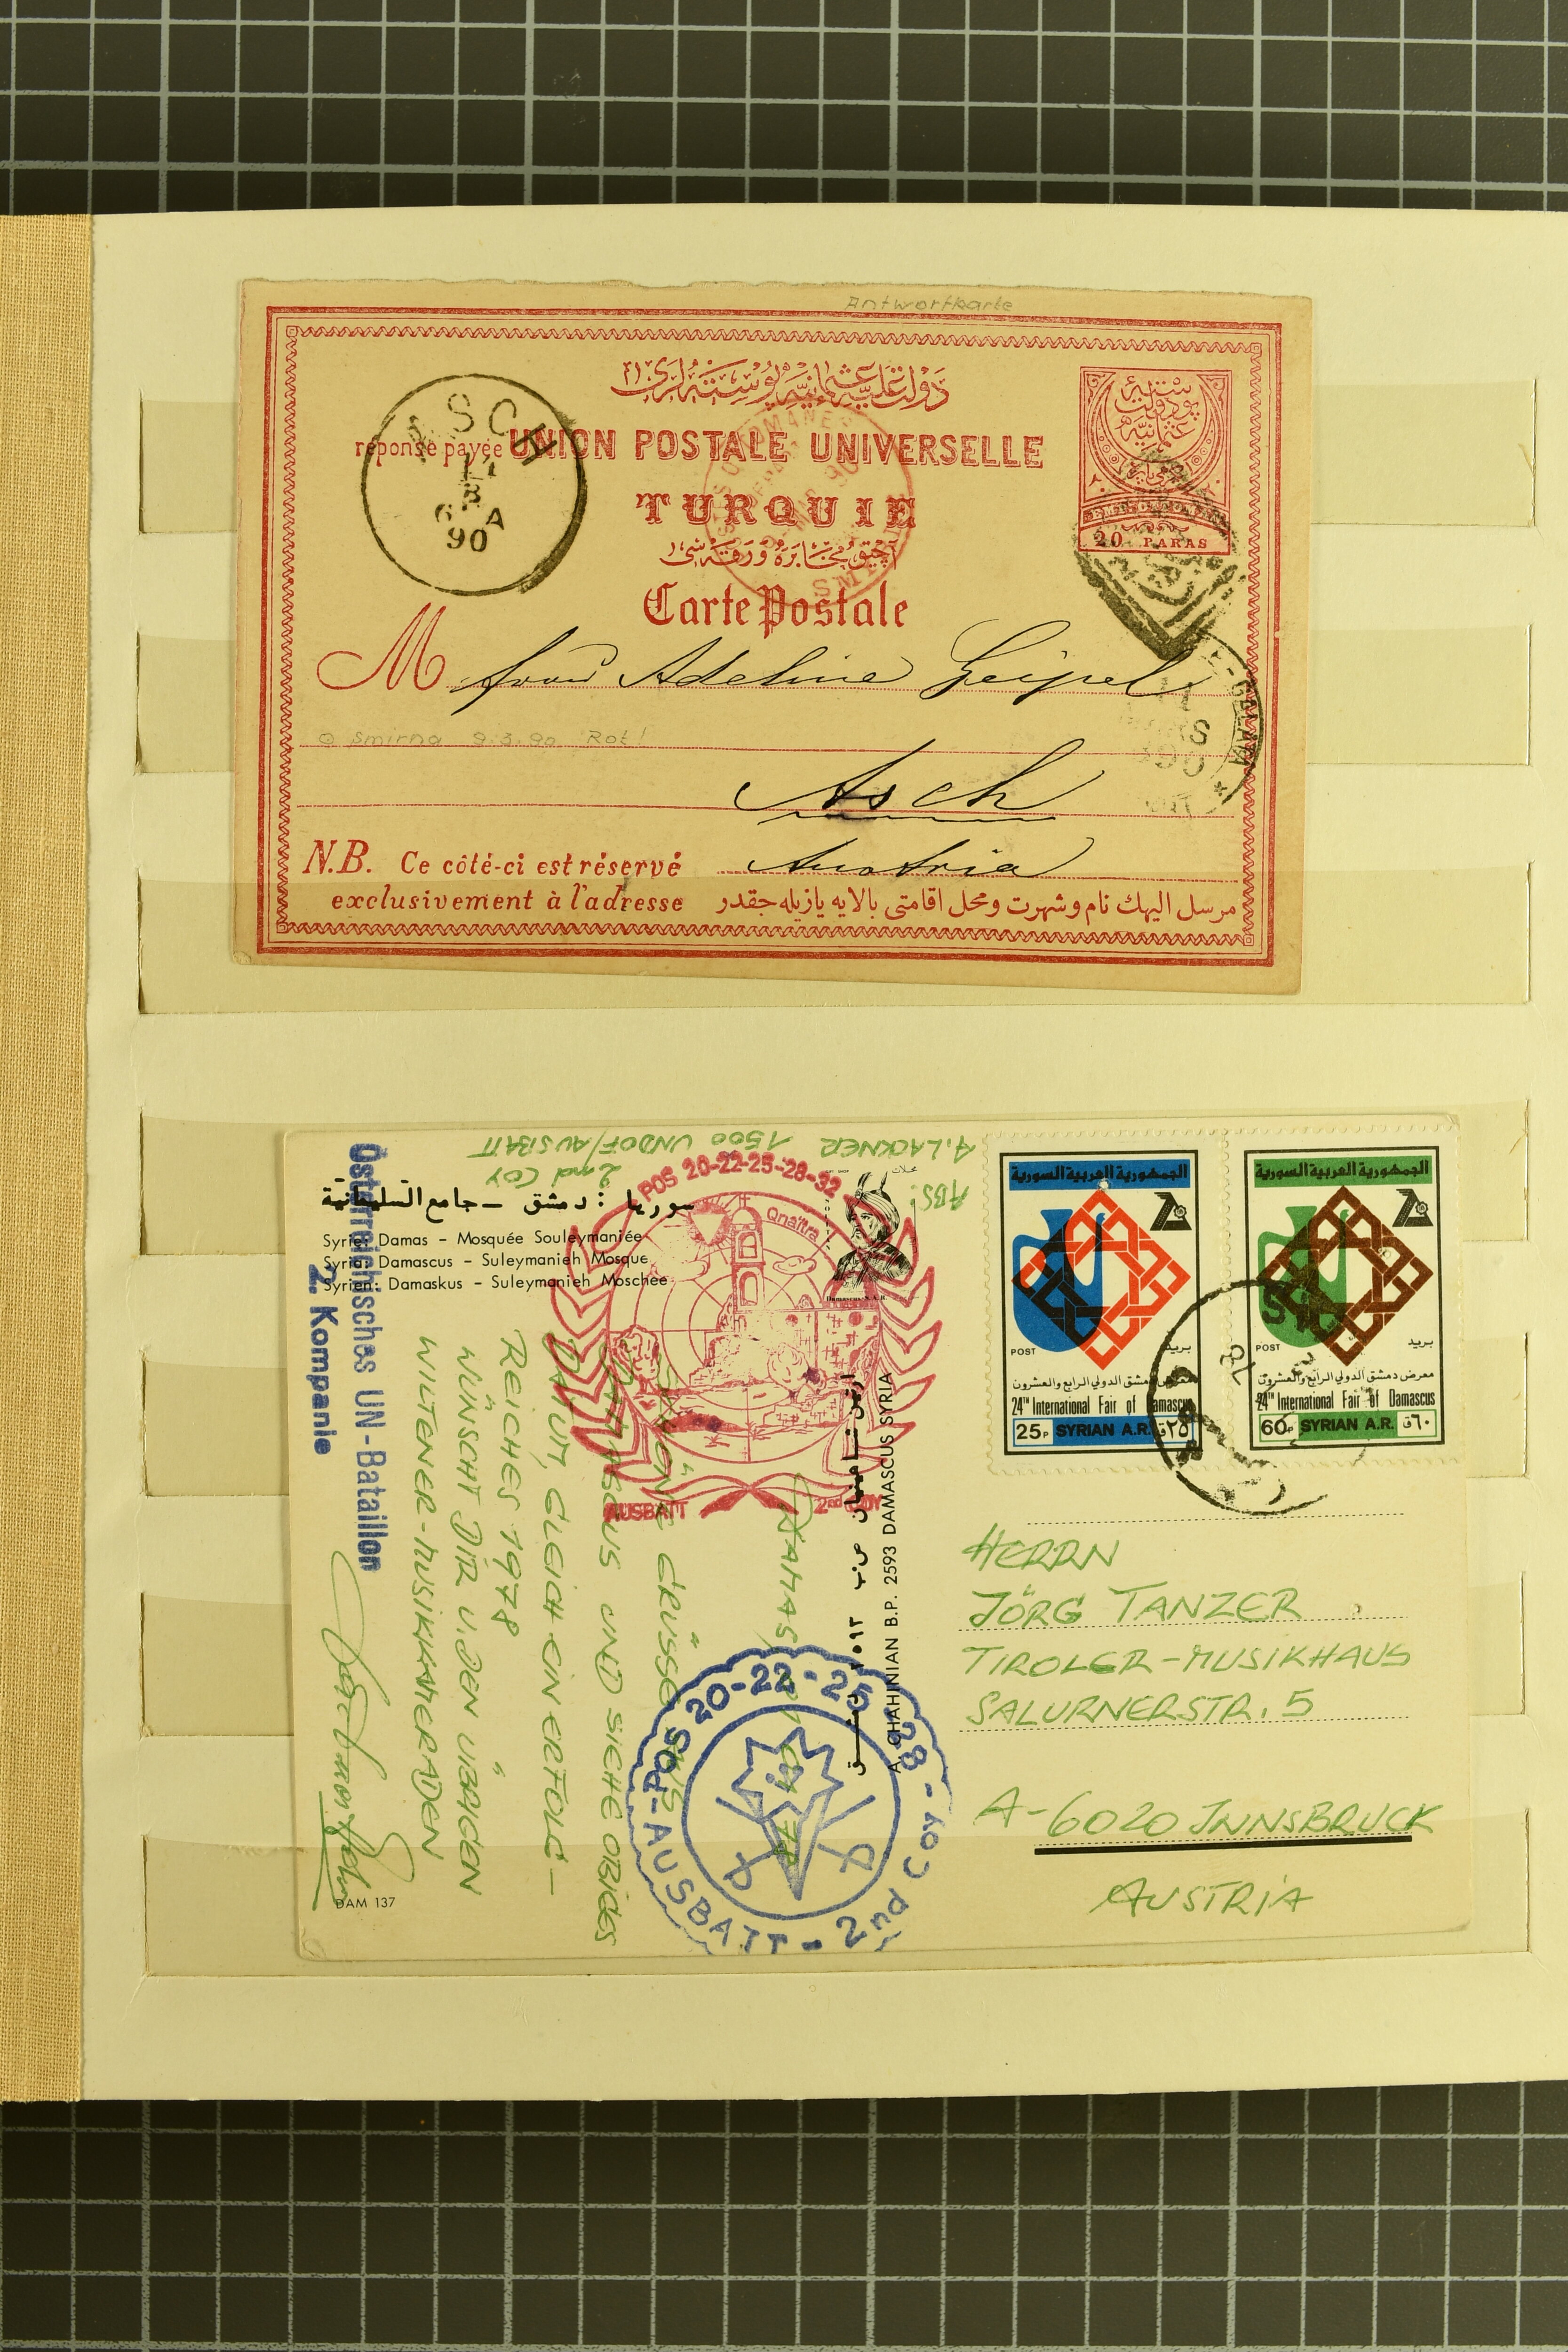 Antwortkarte
دولت عليۀ عثمانيه پوسته لرى
réponse payée UNION POSTALE UNIVERSELLE
TURQUIE
Carte Postale
20 PARAS
ASCH
6 A
90
SMYRNE
M Frau Adeline Geipel
Smirna 9.3.90 Rot!
11
MARS
GALATA
Asch
Austria
N.B. Ce côté-ci est réservé
exclusivement à l'adresse
مرسل اليهك نام وشهرت ومحل اقامتى بالايه يازيله جقدر
ABS: A. LACKNER 1500 UNDOF/AUSBATT
2nd COY
سوريا : دمشق — جامع السليمانية
Syrie: Damas – Mosquée Souleymaniée
Syria: Damascus – Suleymanieh Mosque
Syrien: Damaskus – Suleymanieh Moschee
Österreichisches UN-Bataillon
2. Kompanie
POS 20-22-25-28-32
Qnaitra
AUSBATT 2nd COY
SCHÖNE GRÜSSE AUS
DAMASCUS UND SIEHE OBIGES
DATUM, GLEICH EIN ERFOLG-
REICHES 1978
WÜNSCHT DIR U. DEN ÜBRIGEN
WILTENER-MUSIKKAMERADEN
DAM 137
A. CHAHINIAN B.P. 2593 DAMASCUS SYRIA
POS 20-22-25-28 - 2nd Coy - AUSBATT
الجمهورية العربية السورية
POST بريد
معرض دمشق الدولي الرابع والعشرون
24TH International Fair of Damascus
25P SYRIAN A.R. ٢٥ق
الجمهورية العربية السورية
POST بريد
معرض دمشق الدولي الرابع والعشرون
24TH International Fair of Damascus
60P SYRIAN A.R. ٦٠ق
HERRN
JÖRG TANZER
TIROLER-MUSIKHAUS
SALURNERSTR. 5
A-6020 INNSBRUCK
AUSTRIA